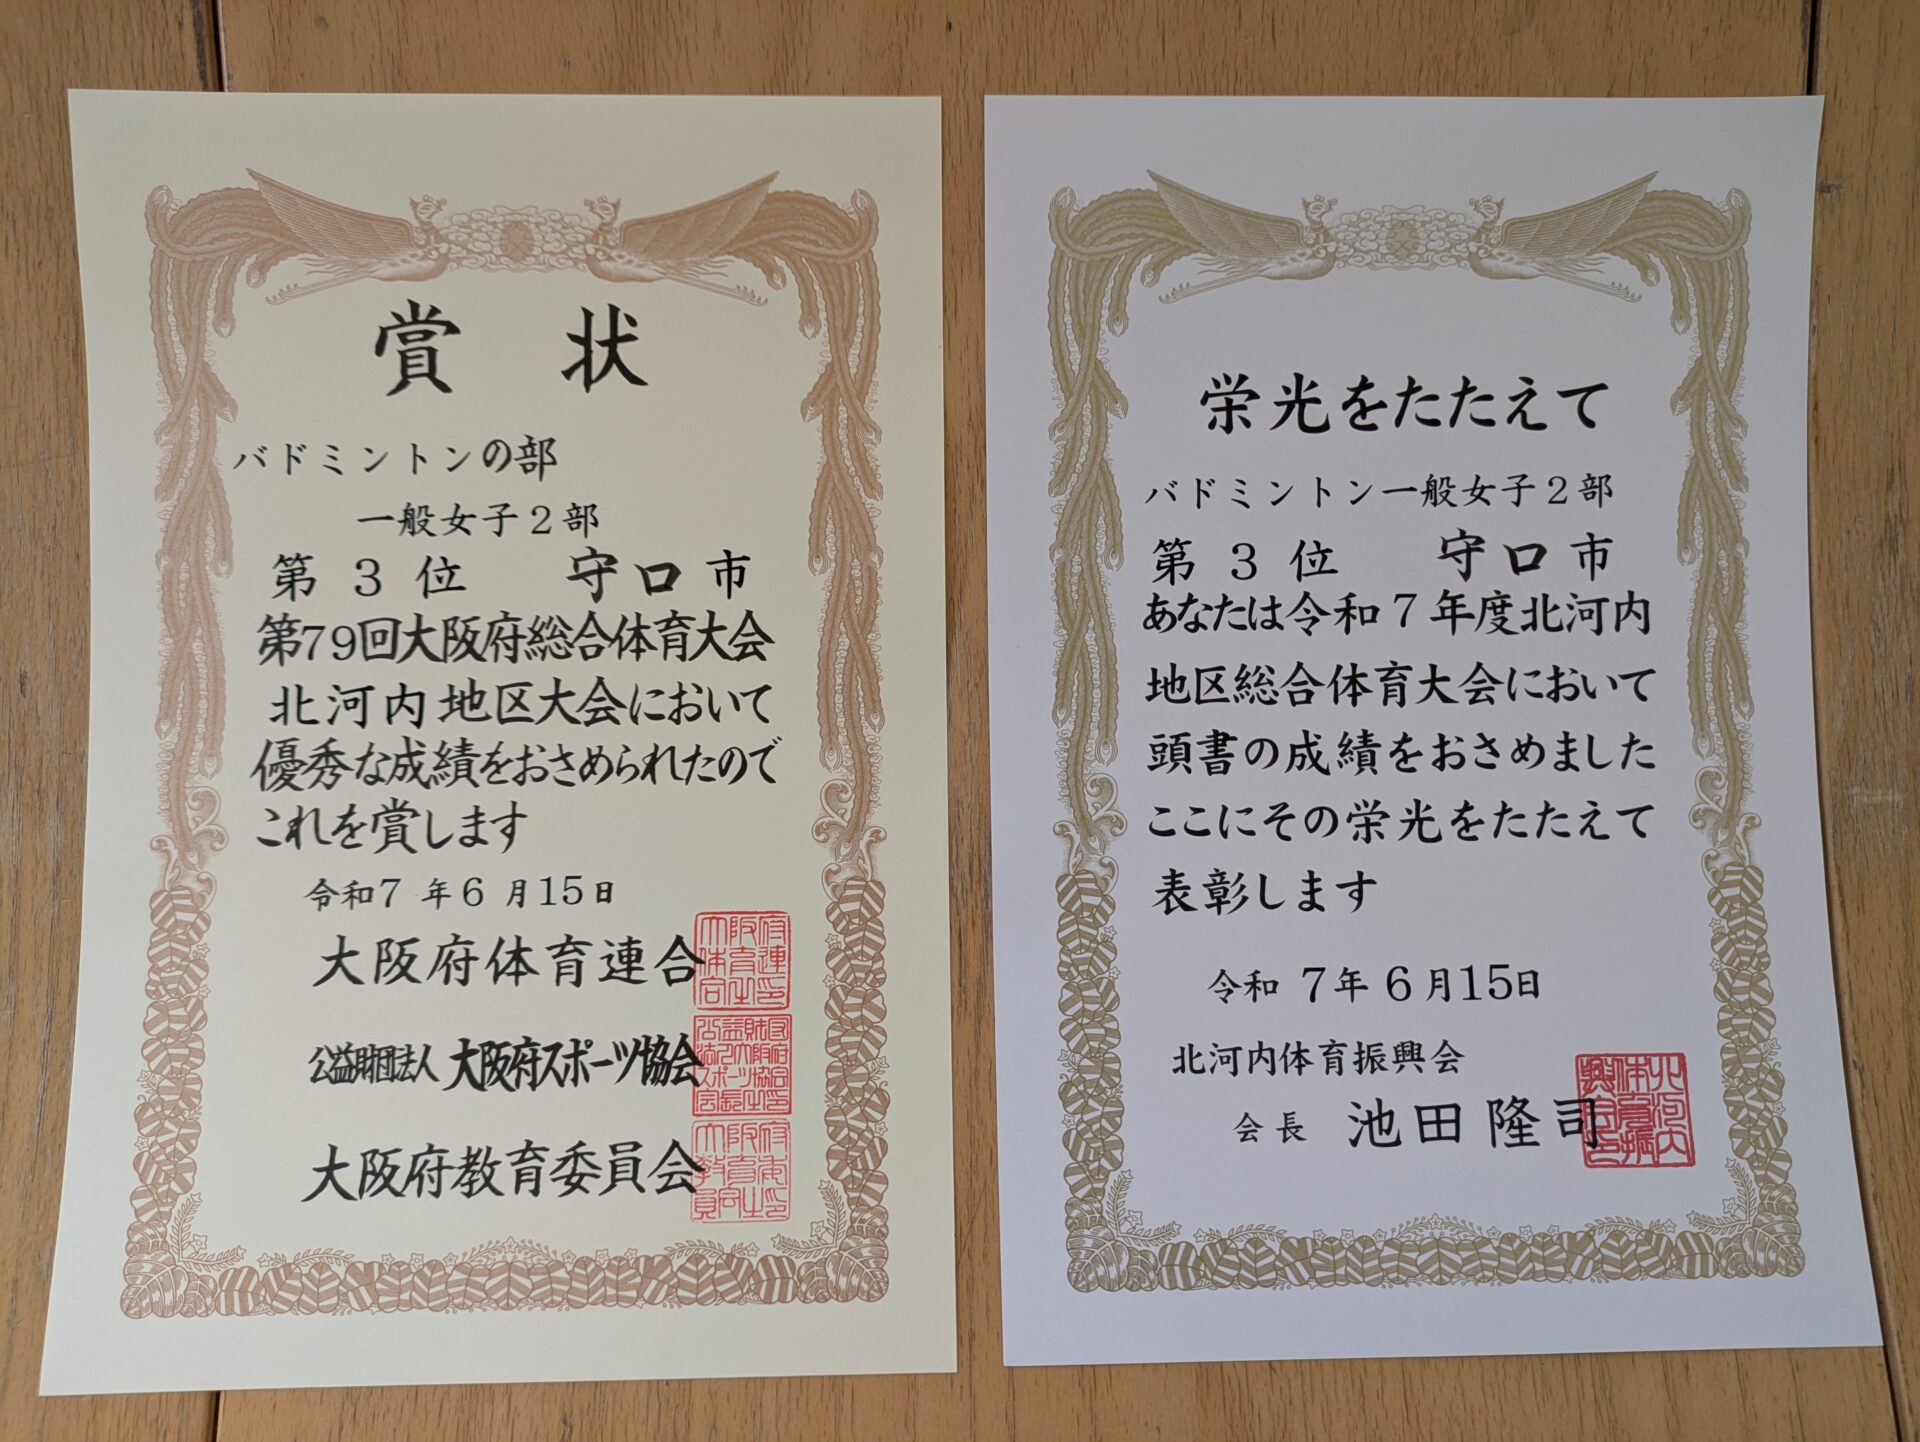 賞 状
バドミントンの部
一般女子2部
第 3 位 守口市
第79回大阪府総合体育大会
北河内地区大会において
優秀な成績をおさめられたので
これを賞します
令和7年6月15日
大阪府体育連合
公益財団法人 大阪府スポーツ協会
大阪府教育委員会
栄光をたたえて
バドミントン一般女子2部
第 3 位 守口市
あなたは令和7年度北河内
地区総合体育大会において
頭書の成績をおさめました
ここにその栄光をたたえて
表彰します
令和 7年 6月15日
北河内体育振興会
会長 池田隆司